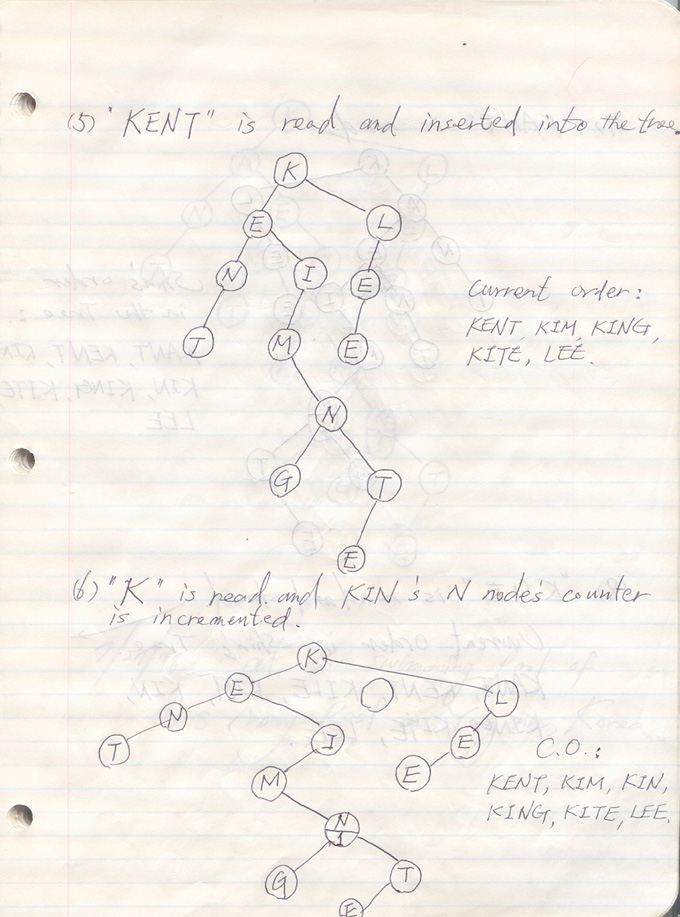 (5) "KENT" is read and inserted into the tree.
K
E L
N I E
T M E
N
G T
E
Current order:
KENT, KIM, KING,
KITE, LEE.
(6) "K" is read. and KIN's N node's counter
is incremented.
K
E L
N I E
T M E
N
1
G T
E
C.O.:
KENT, KIM, KIN,
KING, KITE, LEE.